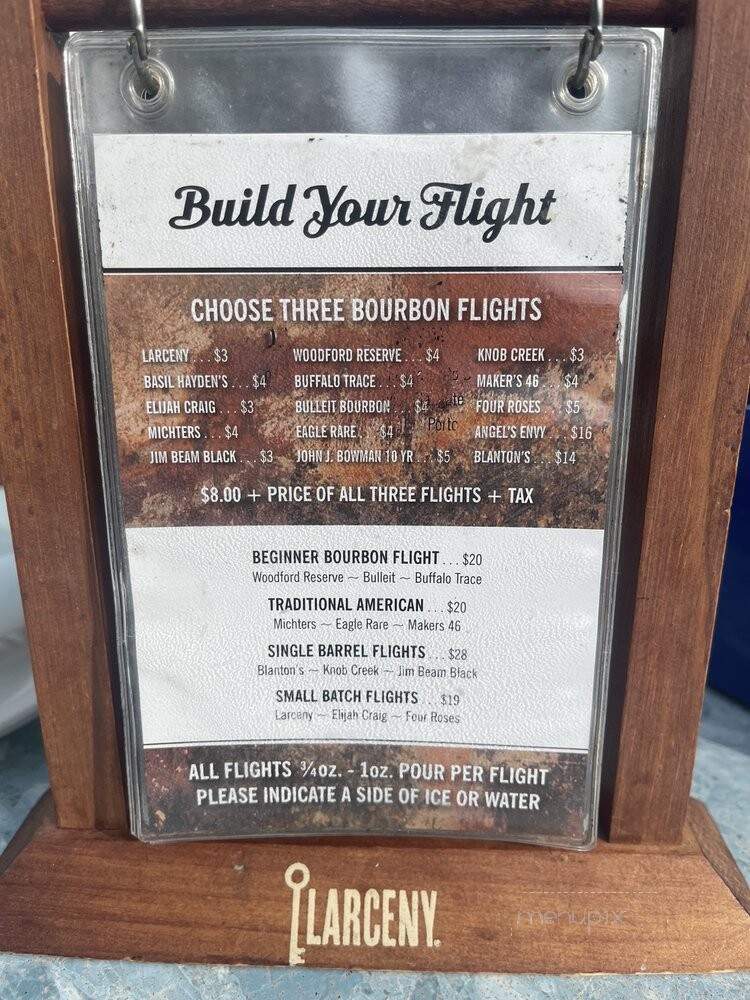 Build Your Flight
CHOOSE THREE BOURBON FLIGHTS
LARCENY ... $3 WOODFORD RESERVE ... $4 KNOB CREEK ... $3
BASIL HAYDEN'S ... $4 BUFFALO TRACE ... $4 MAKER'S 46 ... $4
ELIJAH CRAIG ... $3 BULLEIT BOURBON ... $4 FOUR ROSES ... $5
MICHTERS ... $4 EAGLE RARE ... $4 ANGEL'S ENVY ... $16
JIM BEAM BLACK ... $3 JOHN J. BOWMAN 10 YR ... $5 BLANTON'S ... $14
$8.00 + PRICE OF ALL THREE FLIGHTS + TAX
BEGINNER BOURBON FLIGHT ... $20
Woodford Reserve ~ Bulleit ~ Buffalo Trace
TRADITIONAL AMERICAN ... $20
Michters ~ Eagle Rare ~ Makers 46
SINGLE BARREL FLIGHTS ... $28
Blanton's ~ Knob Creek ~ Jim Beam Black
SMALL BATCH FLIGHTS ... $19
Larceny ~ Elijah Craig ~ Four Roses
ALL FLIGHTS ¾oz. - 1oz. POUR PER FLIGHT
PLEASE INDICATE A SIDE OF ICE OR WATER
LARCENY.
menupix